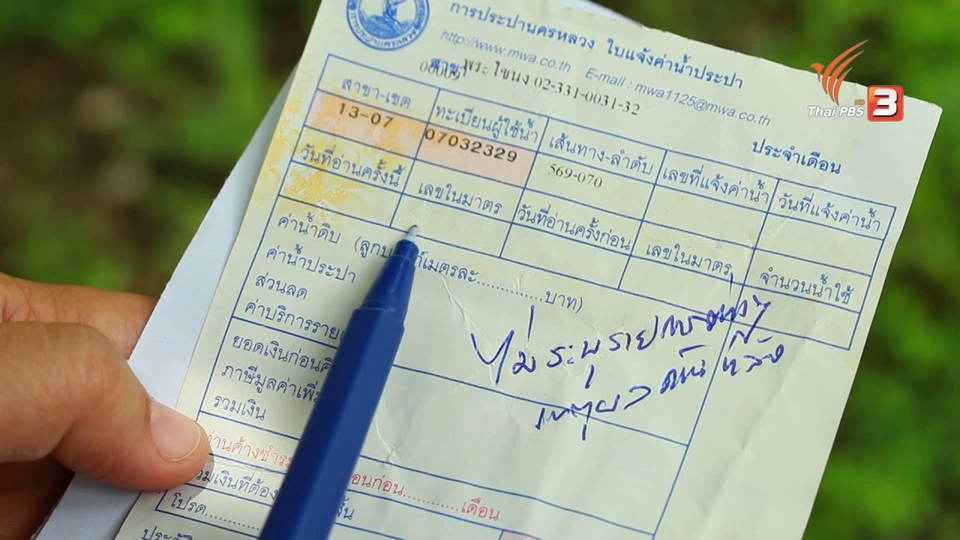 การประปานครหลวง
การประปานครหลวง ใบแจ้งค่าน้ำประปา
http://www.mwa.co.th E-mail : mwa1125@mwa.co.th
สาขา พระโขนง 02-331-0031-32
00009
Thai PBS HD 3
ประจำเดือน
สาขา-เขต ทะเบียนผู้ใช้น้ำ เส้นทาง-ลำดับ เลขที่แจ้งค่าน้ำ วันที่แจ้งค่าน้ำ
13-07 07032329 569-070
วันที่อ่านครั้งนี้ เลขในมาตร วันที่อ่านครั้งก่อน เลขในมาตร จำนวนน้ำใช้
ค่าน้ำดิบ (ลูกบ ก์เมตรละ...............บาท)
ค่าน้ำประปา
ส่วนลด
ค่าบริการราย
ยอดเงินก่อน
ภาษีมูลค่าเพิ่
รวมเงิน
ไม่ระบุราย
เหตุผล
ท่านค้างชำร ือนก่อน...............เดือน
รวมเงินที่ต้อง ้น
โปรด